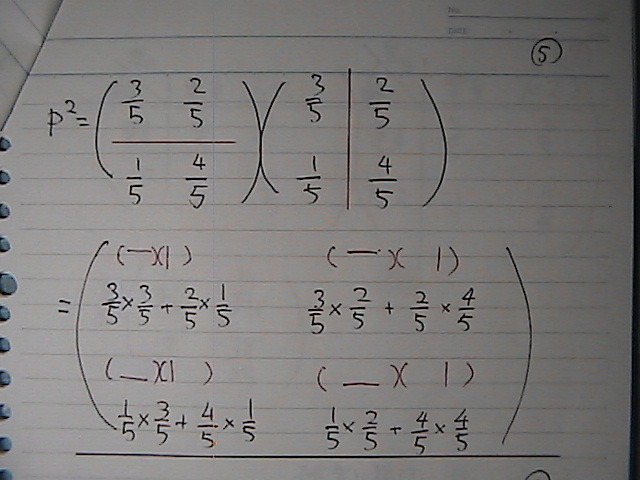 NO.
DATE
⑤
P²= (3/5 2/5)(3/5 | 2/5)
(1/5 4/5)(1/5 | 4/5)
= ( (—)(| ) (—)( |)
3/5 × 3/5 + 2/5 × 1/5 3/5 × 2/5 + 2/5 × 4/5
(—)(| ) (—)( |)
1/5 × 3/5 + 4/5 × 1/5 1/5 × 2/5 + 4/5 × 4/5 )